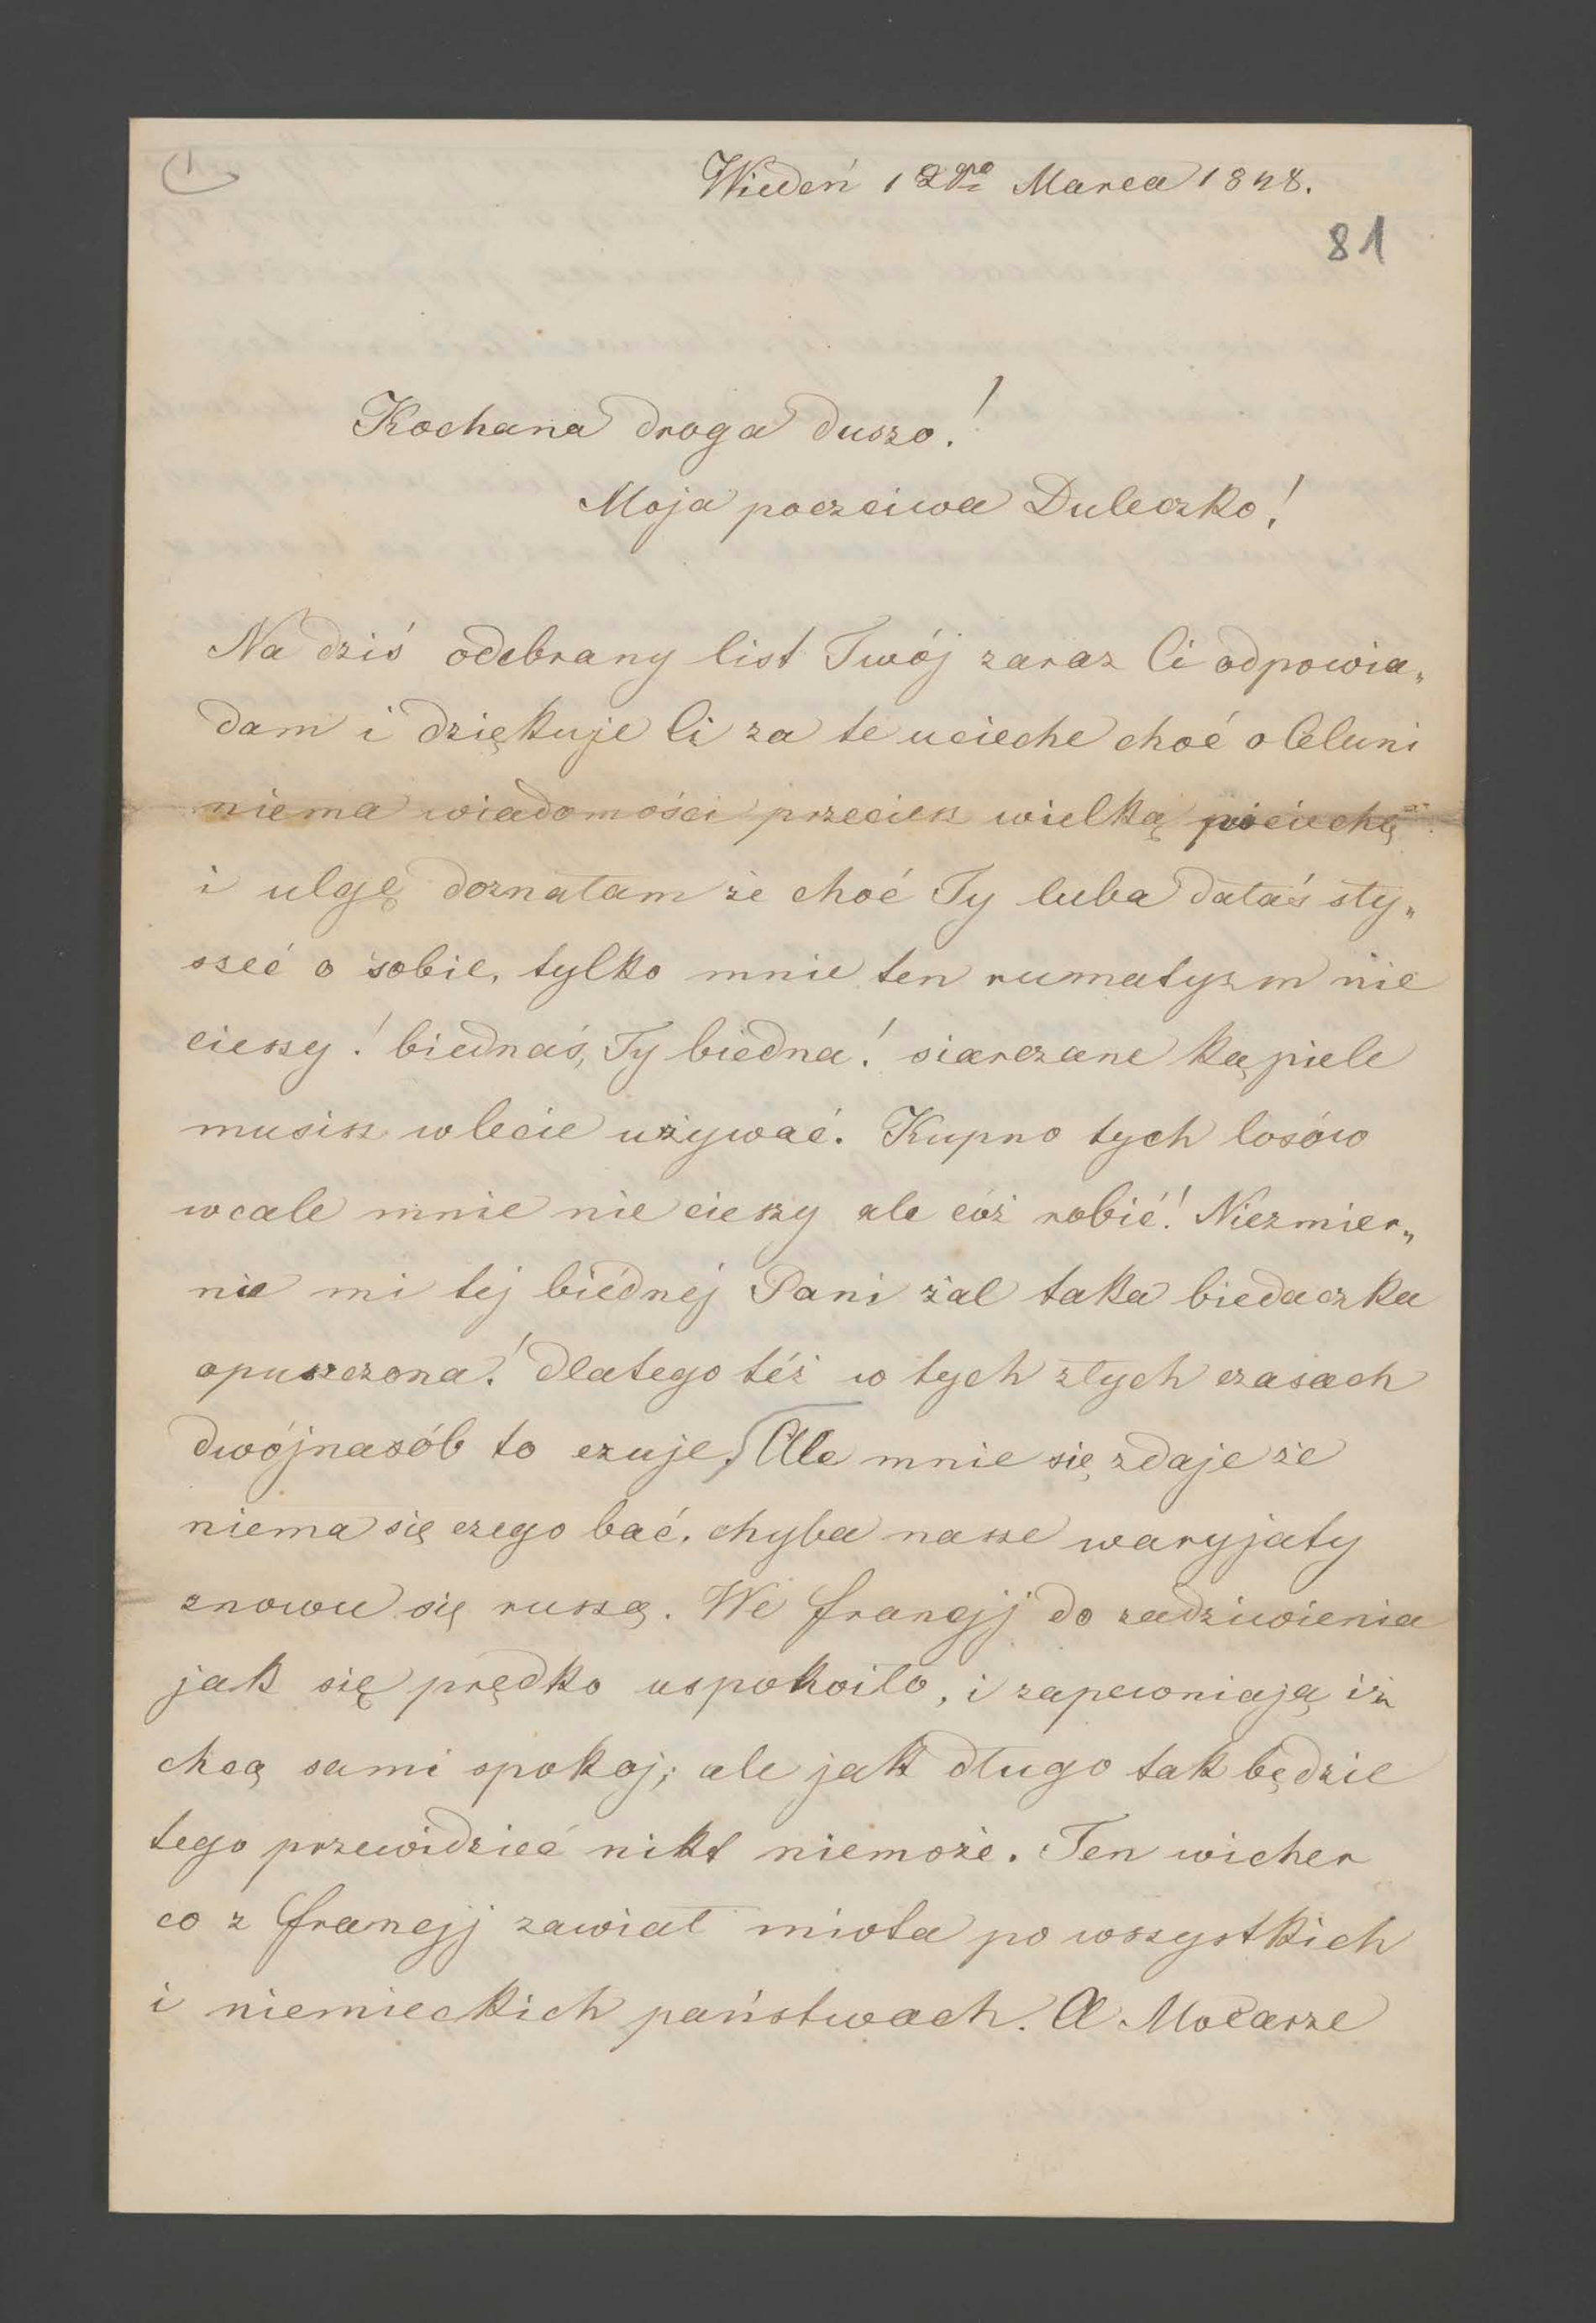 1
Wiedeń 12go Marca 1848.
81
Kochana droga duszo!
Moja poczciwa Duleczko!
Na dziś odebrany list Twój zaraz Ci odpowia„
dam i dziękuje Ci za te ucieche choć o Celuni
niema wiadomości przeciesz wielką pociechę
i ulgę doznałam że choć Ty luba dałaś sły„
szeć o sobie, tylko mnie ten rumatyzm nie
cieszy! biednaś, Ty biedna! siarczane kąpiele
musisz w lecie używać. Kupno tych losów
wcale mnie nie cieszy ale cóż robić! Niezmier„
nie mi tej biédnéj Pani żal taka biedaczka
opuszczona! dlatego téż w tych złych czasach
dwójnasób to czuje. Ale mnie się zdaje że
niema się czego bać, chyba nasze waryjaty
znowu się ruszą. We francyj do zadziwienia
jak się prędko uspokoiło, i zapewniają iż
chcą sami spokoj; ale jak długo tak będzie
tego przewidzieć nikt niemoże. Ten wicher
co z francyj zawiał miota po wszystkich
i niemieckich państwach. A Mocarze